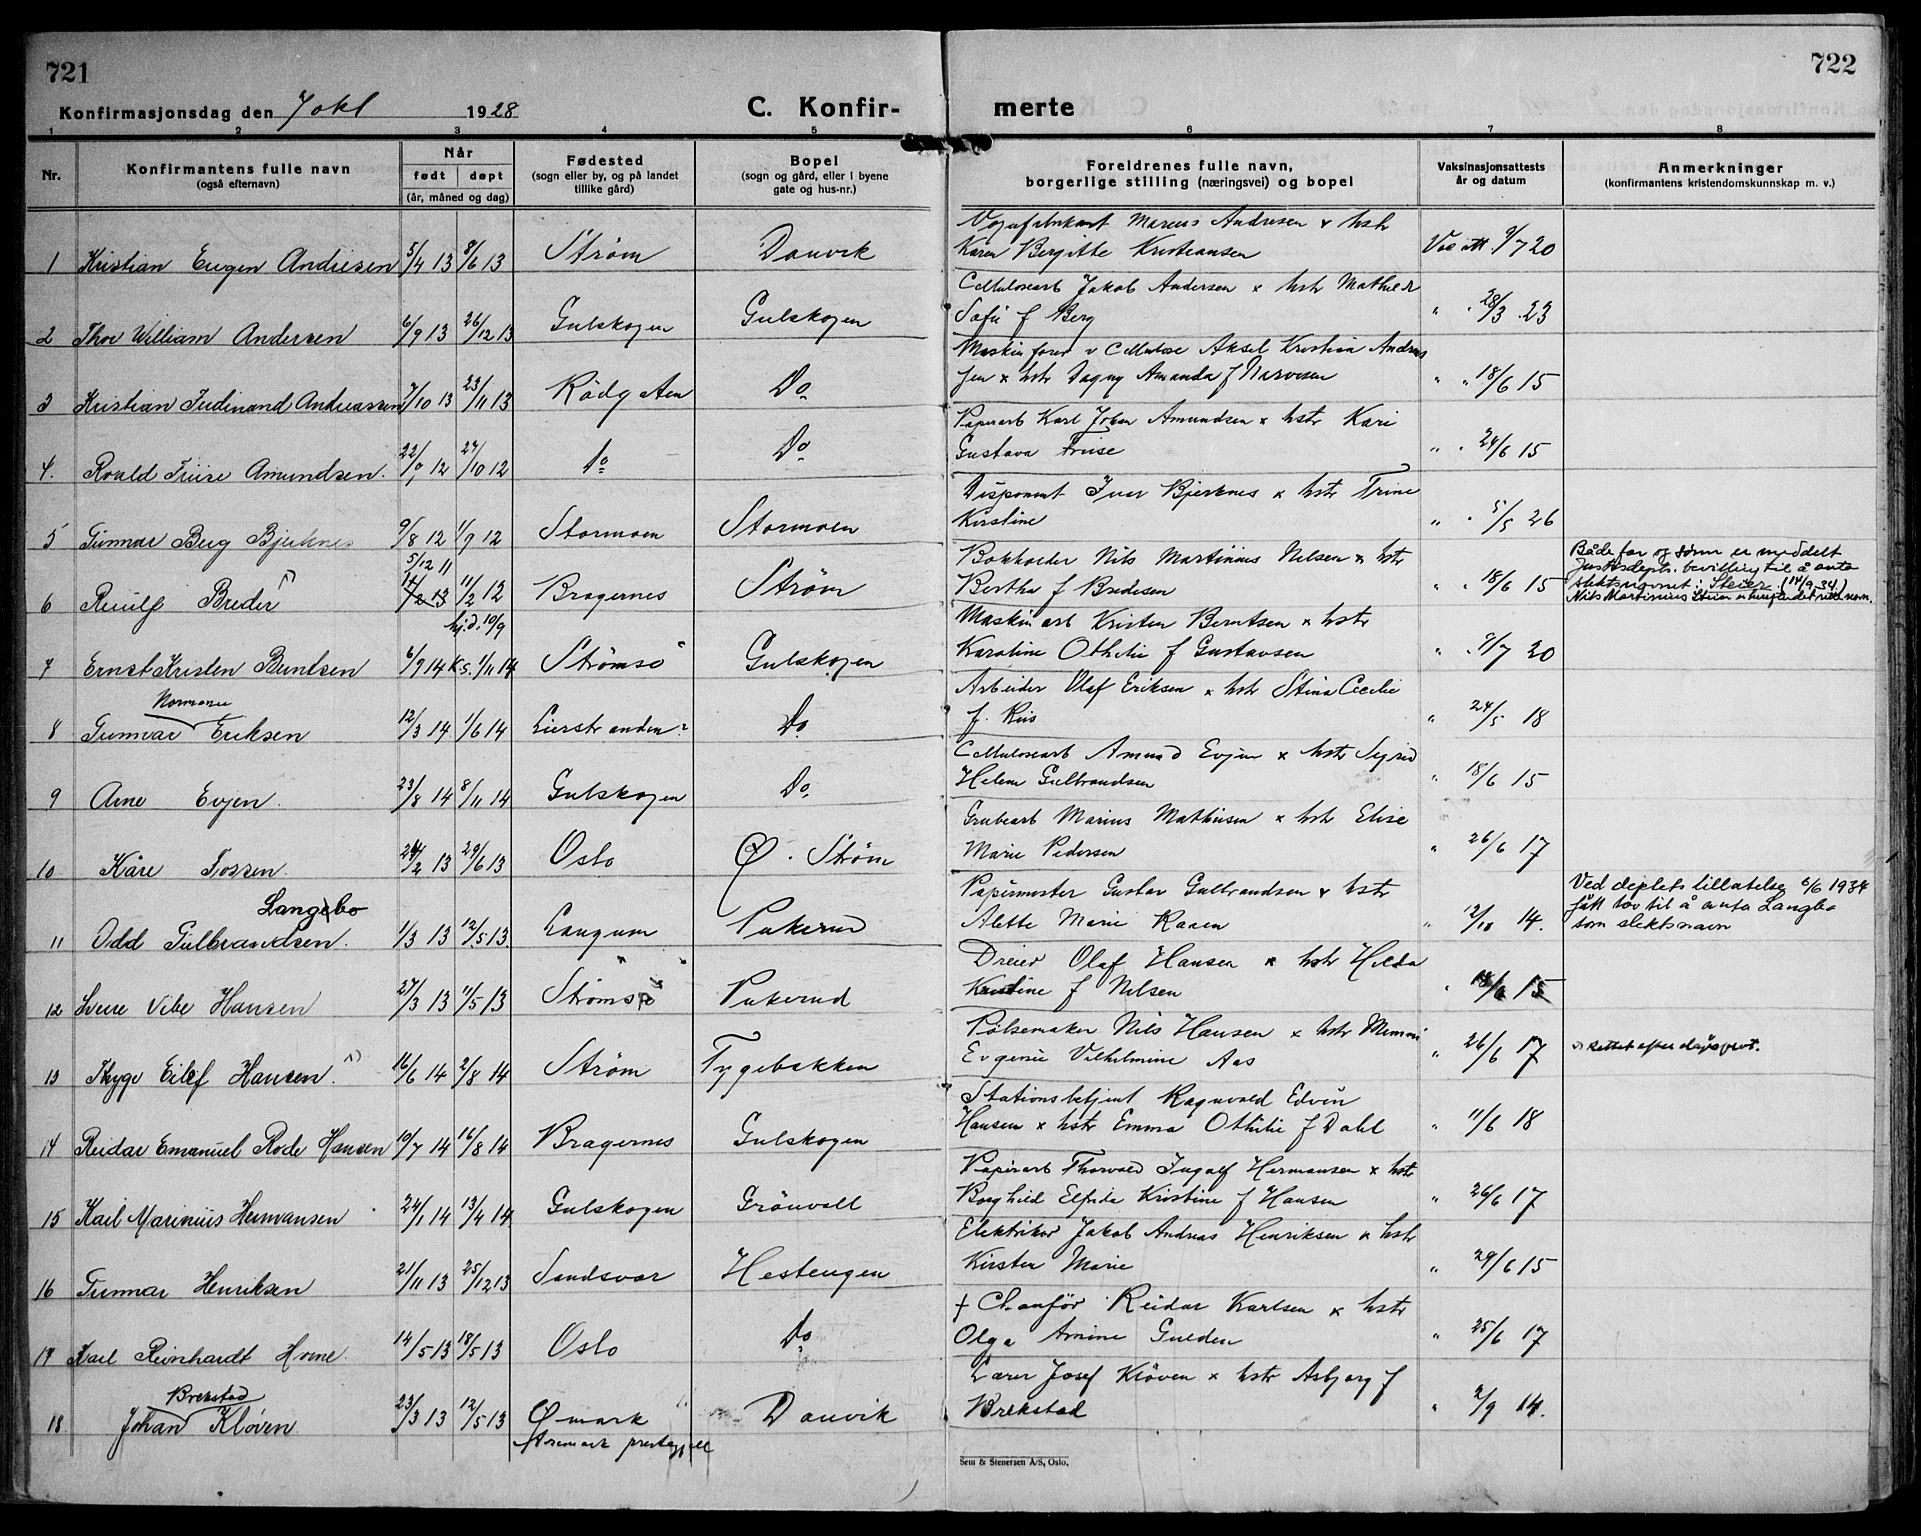 721
722
Konfirmasjonsdag den 7 okt 1928
C. Konfir-
merte
1 2 3 4 5 6 7 8
Nr.
Konfirmantens fulle navn
(også efternavn)
Når
født døpt
(år, måned og dag)
Fødested
(sogn eller by, og på landet
tillike gård)
Bopel
(sogn og gård, eller i byene
gate og hus-nr.)
Foreldrenes fulle navn,
borgerlige stilling (næringsvei) og bopel
Vaksinasjonsattests
år og datum
Anmerkninger
(konfirmantens kristendomskunnskap m. v.)
Vognfabrikant Marius Andresen & hstr
1 Kristian Eugen Andresen 5/4 13 8/6 13 Strøm Danvik Karen Bergitte Kristiansen Vac att. 9/7 20
Cellulosearb Jakob Andersen & hstr Mathilde
2 Thor William Andersen 6/9 13 26/12 13 Gulskogen Gulskogen Sofie f Berg " 28/3 23
Maskinfører v Cellulose Aksel Kristian Andreas
3 Kristian Ferdinand Andreassen 7/10 13 23/11 13 Rødgaten Do sen & hstr Dagny Amanda f Narvesen " 18/6 15
Papirarb Karl Johan Amundsen & hstr Kari
4. Roald Friise Amundsen. 22/9 12 27/10 12 do Do Gustava Friise " 24/6 15
Disponent Iver Bjerknes & hstr Trine
5 Gunnar Berg Bjerknes 9/8 12 1/9 12 Stormoen Stormoen Kirstine " 5/5 26
5/12 11
Bokholder Nils Martinius Nilsen & hstr
Både far og sønn er meddelt
Justisdepts. bevilling til å anta
slektsnavnet: Steier (14/9 34)
6 Reiulf Breder 11/2 12 Bragernes Strøm Bertha f Bredesen " 18/6 15
hj.d. 10/9
Maskinarb Kristen Berntsen & hstr
7 Ernst Kristen Berntsen 6/9 14 k.s. 1/11 14 Strømsø Gulskogen Karoline Othilie f Gustavsen " 9/7 20
Normann
Arbeider Olaf Eriksen & hstr Stina Cecilie
8 Gunnar Eriksen 12/3 14 1/6 14 Lierstranden Do f. Riis " 24/5 18
Cellulosearb Amund Evjen & hstr Sigrid
9 Arne Evjen. 23/8 14 8/11 14 Gulskogen Do Helene Gulbrandsen " 18/6 15
Grubearb Marius Mathisen & hstr Elise
10 Kåre Fossen. 24/2 13 29/6 13 Oslo Ø. Strøm Marie Pedersen " 26/6 17
Langebo
Papirmester Gustav Gulbrandsen & hstr
Ved deptets tillatelse 6/6 1934
fått lov til å anta Langbo
som slektsnavn
11 Odd Gulbrandsen. 1/3 13 12/5 13 Laugum Pukerud Alette Marie Kaasen " 12/10 14.
Dreier Olaf Hansen & hstr Hilda
12 Sverre Vibe Hansen 27/3 13 11/5 13 Strømsø Pukerud Kristine f Nilsen " 18/6 15
Pølsemaker Nils Hansen & hstr Mimmi
13 Thyge Eilef Hansen. 16/6 14 2/8 14 Strøm Tygebakken Evgenie Vilhelmine Aas " 26/6 17 rettet efter dåpsprot.
Stationsbetjent Ragnvald Edvin
14 Reidar Emanuel Rode Hansen 10/7 14 16/8 14 Bragernes Gulskogen Hansen & hstr Emma Othilie f Dahl " 11/6 18
Papirarb Thorvald Ingolf Hermansen & hstr
15 Karl Marinius Hermansen 24/1 14 13/4 14 Gulskogen Grønvoll Borghild Elfrida Kristine f Hansen " 26/6 17
Elektriker Jakob Andreas Henriksen & hstr
16 Gunnar Henriksen 21/11 13 25/12 13 Sandsvær Hestengen Kirsten Marie " 29/6 15
† Chauffør Reidar Karlsen & hstr
17 Karl Reinhardt Horne. 14/5 13 18/5 13 Oslo Do Olga Amine Gulden " 25/6 17
Brekstad
Lærer Josef Kløven & hstr Asbjørg f
18 Johan Kløven. 23/3 13 12/5 13 Ømark Danvik Brekstad " 2/9 14.
Aremark prestegjell
Sem & Stenersen A/S, Oslo.